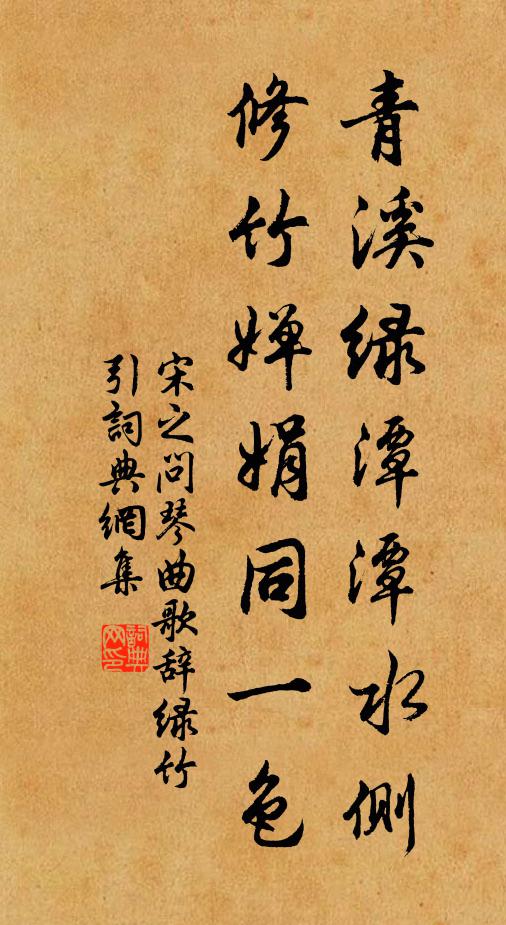 青溪绿潭潭水侧
修竹婵娟同一色
宋之问琴曲歌辞绿竹
引詞典網集
詞典
网印